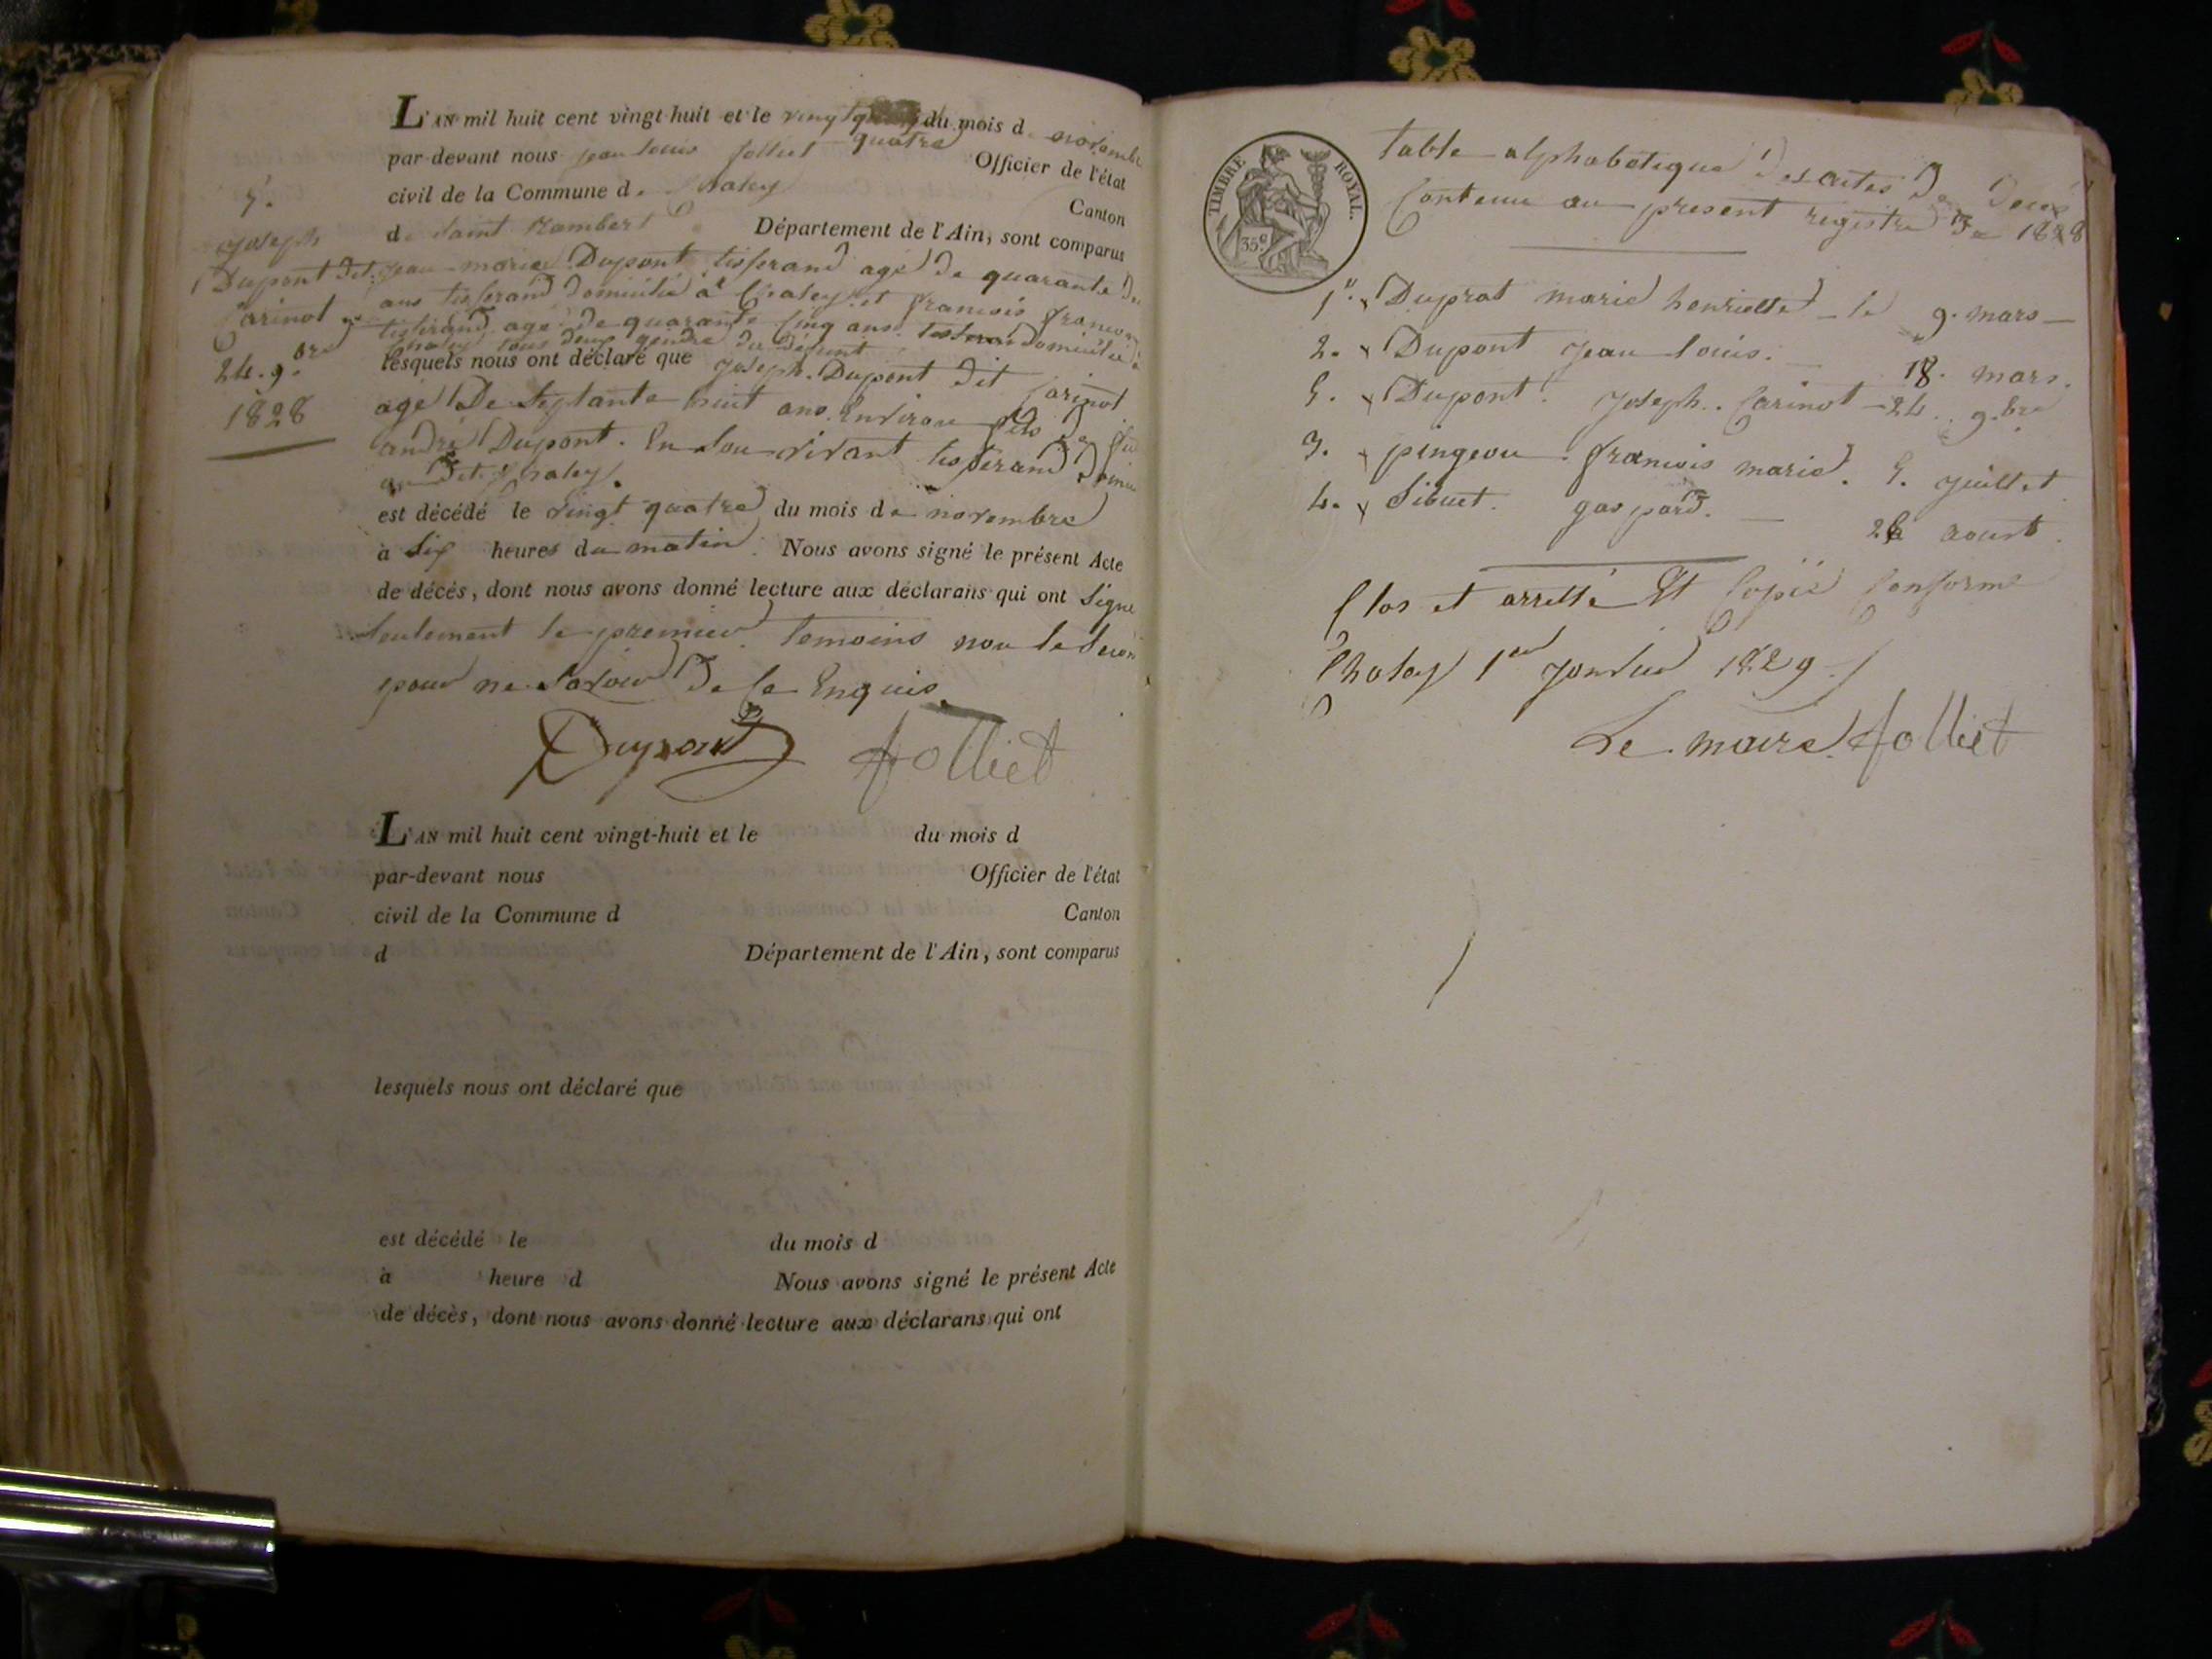 L'AN mil huit cent vingt-huit et le vingt quatre du mois de novembre
par-devant nous jean louis Jolliet Officier de l'état
civil de la Commune de Chaley Canton
de Saint Rambert Département de l'Ain, sont comparus
5.
joseph
Dupont dit
Carinot
24. 9.bre
1828
jean marie Dupont tisserand agé de quarante
ans tisserand domicilié à Chaley et francois
tisserand agé de quarante cinq ans domicilié
Chaley tous deux gendre du défunt
lesquels nous ont déclaré que joseph Dupont dit Carinot
agé De septante huit ans Environ fils de feu
andré Dupont. En Son vivant tisserand
au dit Chaley.
est décédé le vingt quatre du mois de novembre
à Six heures du matin. Nous avons signé le présent Acte
de décès, dont nous avons donné lecture aux déclarans qui ont Signé
seulement le premier temoins non le Secon
pour ne Savoir De ce Enquis
Dupont Jolliet
L'AN mil huit cent vingt-huit et le du mois d
par-devant nous Officier de l'état
civil de la Commune d Canton
d Département de l'Ain, sont comparus
lesquels nous ont déclaré que
est décédé le du mois d
à heure d Nous avons signé le présent Acte
de décès, dont nous avons donné lecture aux déclarans qui ont
TIMBRE ROYAL.
35c
table alphabetique des actes de Deces
Contenu au present registre De 1828
1er. Duprat marie henriette le 9. mars
2. Dupont jean louis. 18. mars.
5. Dupont joseph. Carinot 24. 9.bre
3. pingeon francois marie. 5. juillet
4. Sibuet. gaspard. 26 aoust
Clos et arretté Et Copié Conforme
Chaley 1er janvier 1829
Le maire Jolliet